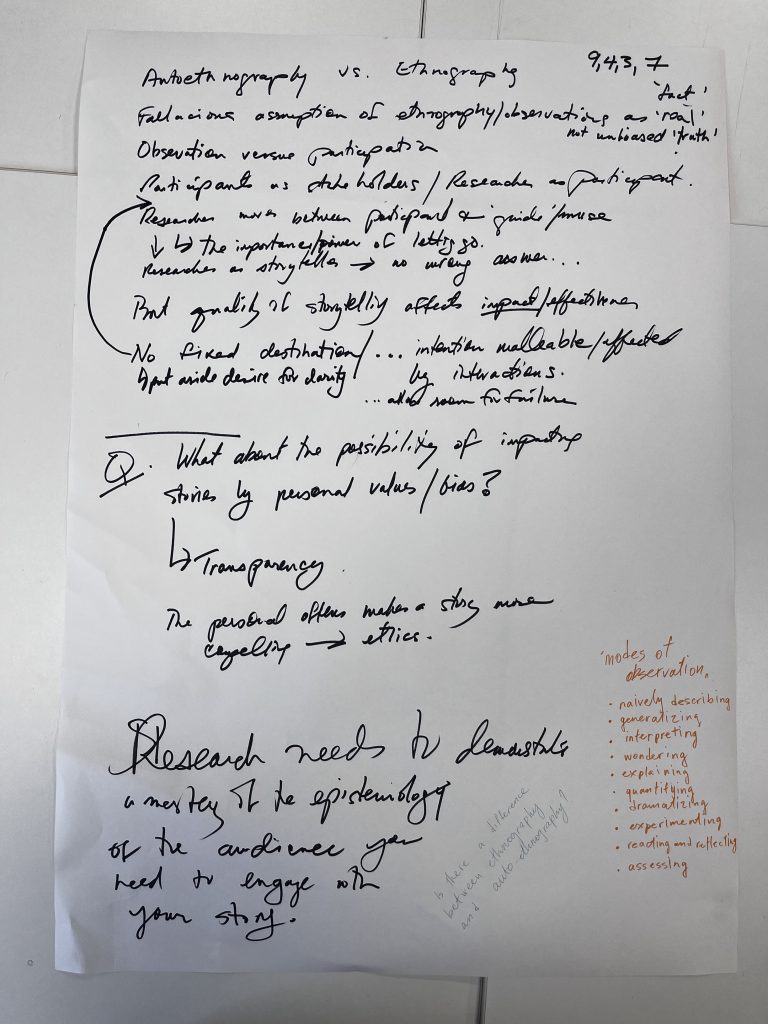 9, 4, 3, 7
Autoethnography vs. Ethnography
'fact'
Fallacious assumption of ethnography/observations as 'real'
not unbiased 'truth'
Observation versus participation
Participants as stakeholders / Researcher as participant.
Researcher moves between participant & 'guide'/muse
↓ ↳ the importance/power of letting go.
Researcher as storyteller → no wrong answer...
But quality of storytelling affects impact/effectiveness
No fixed destination/... intention malleable/affected
↳ put aside desire for clarity by interactions.
... allow room for failure
Q. What about the possibility of impacting
stories by personal values/bias?
↳ Transparency.
The personal often makes a story more
compelling → ethics.
'modes of
observation"
• naively describing
• generalizing
• interpreting
• wondering
• explaining
• quantifying
• dramatizing
• experimenting
• reading and reflecting
• assessing
Research needs to demonstrate
a mastery of the epistemology
of the audience you
need to engage with
your story.
Is there a difference
between ethnography
and auto-ethnography?